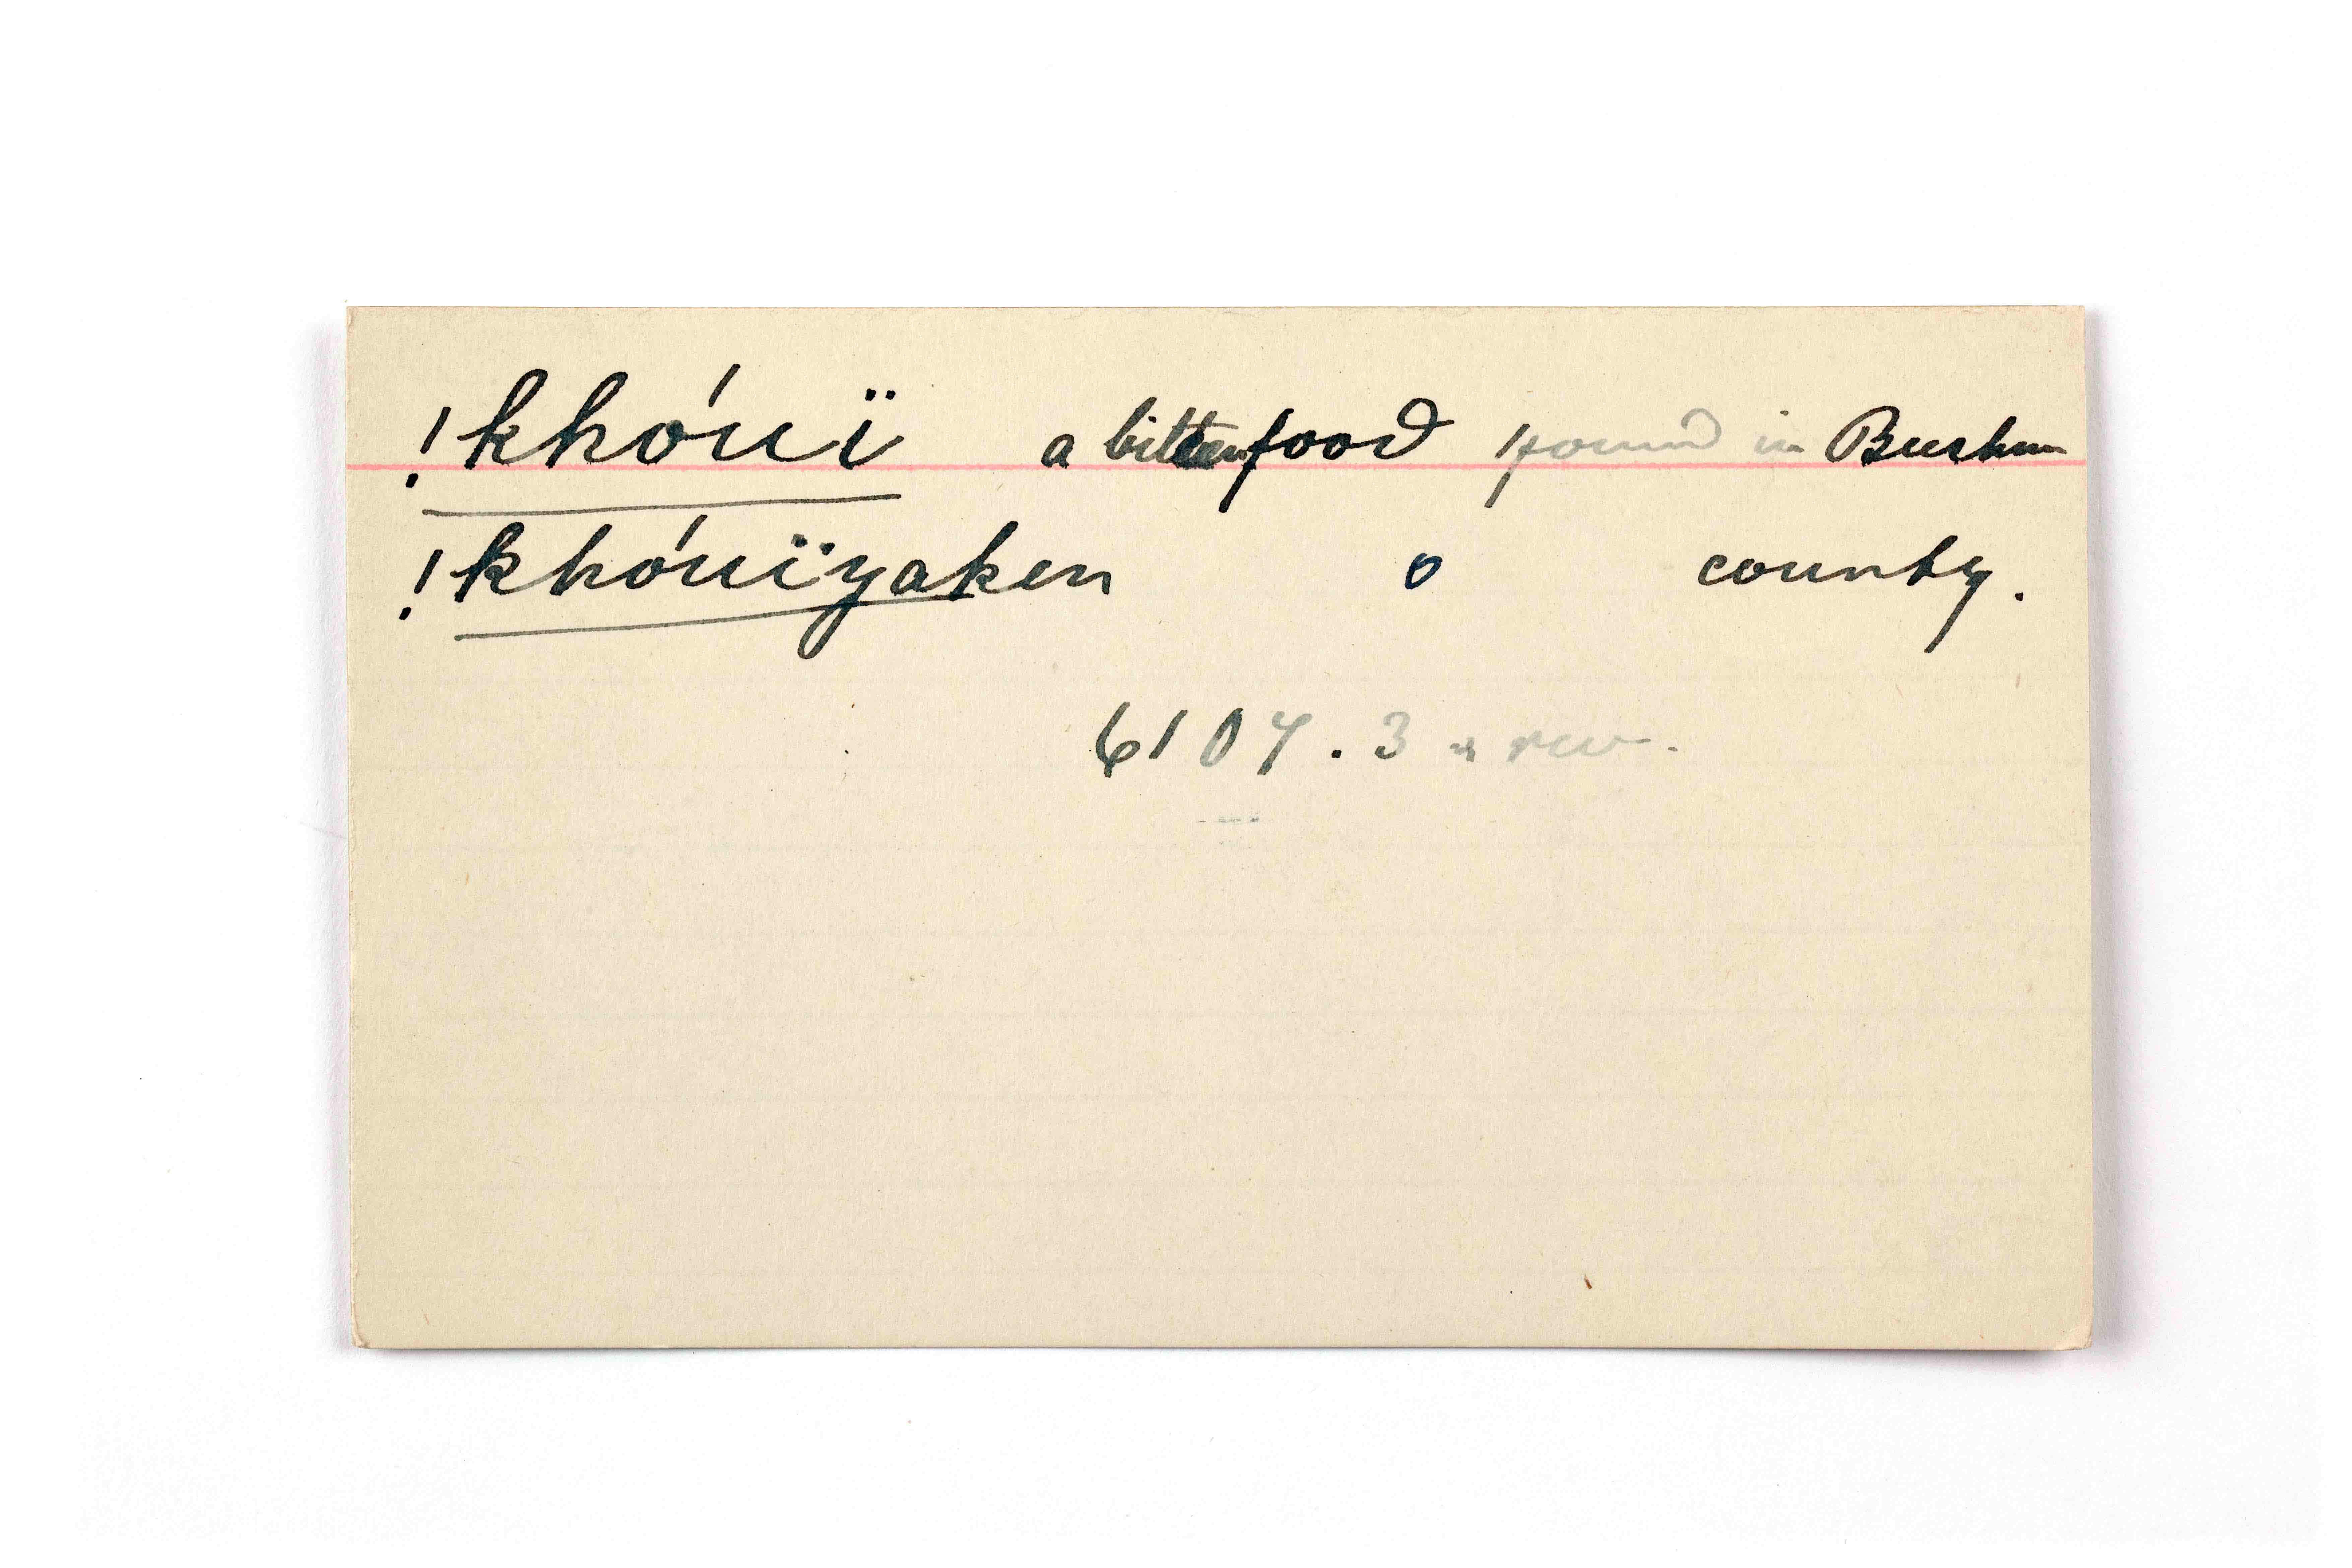 !khóuï a bitter food found in Bushm
!khóuïyaken o county.
6107.3 rev.